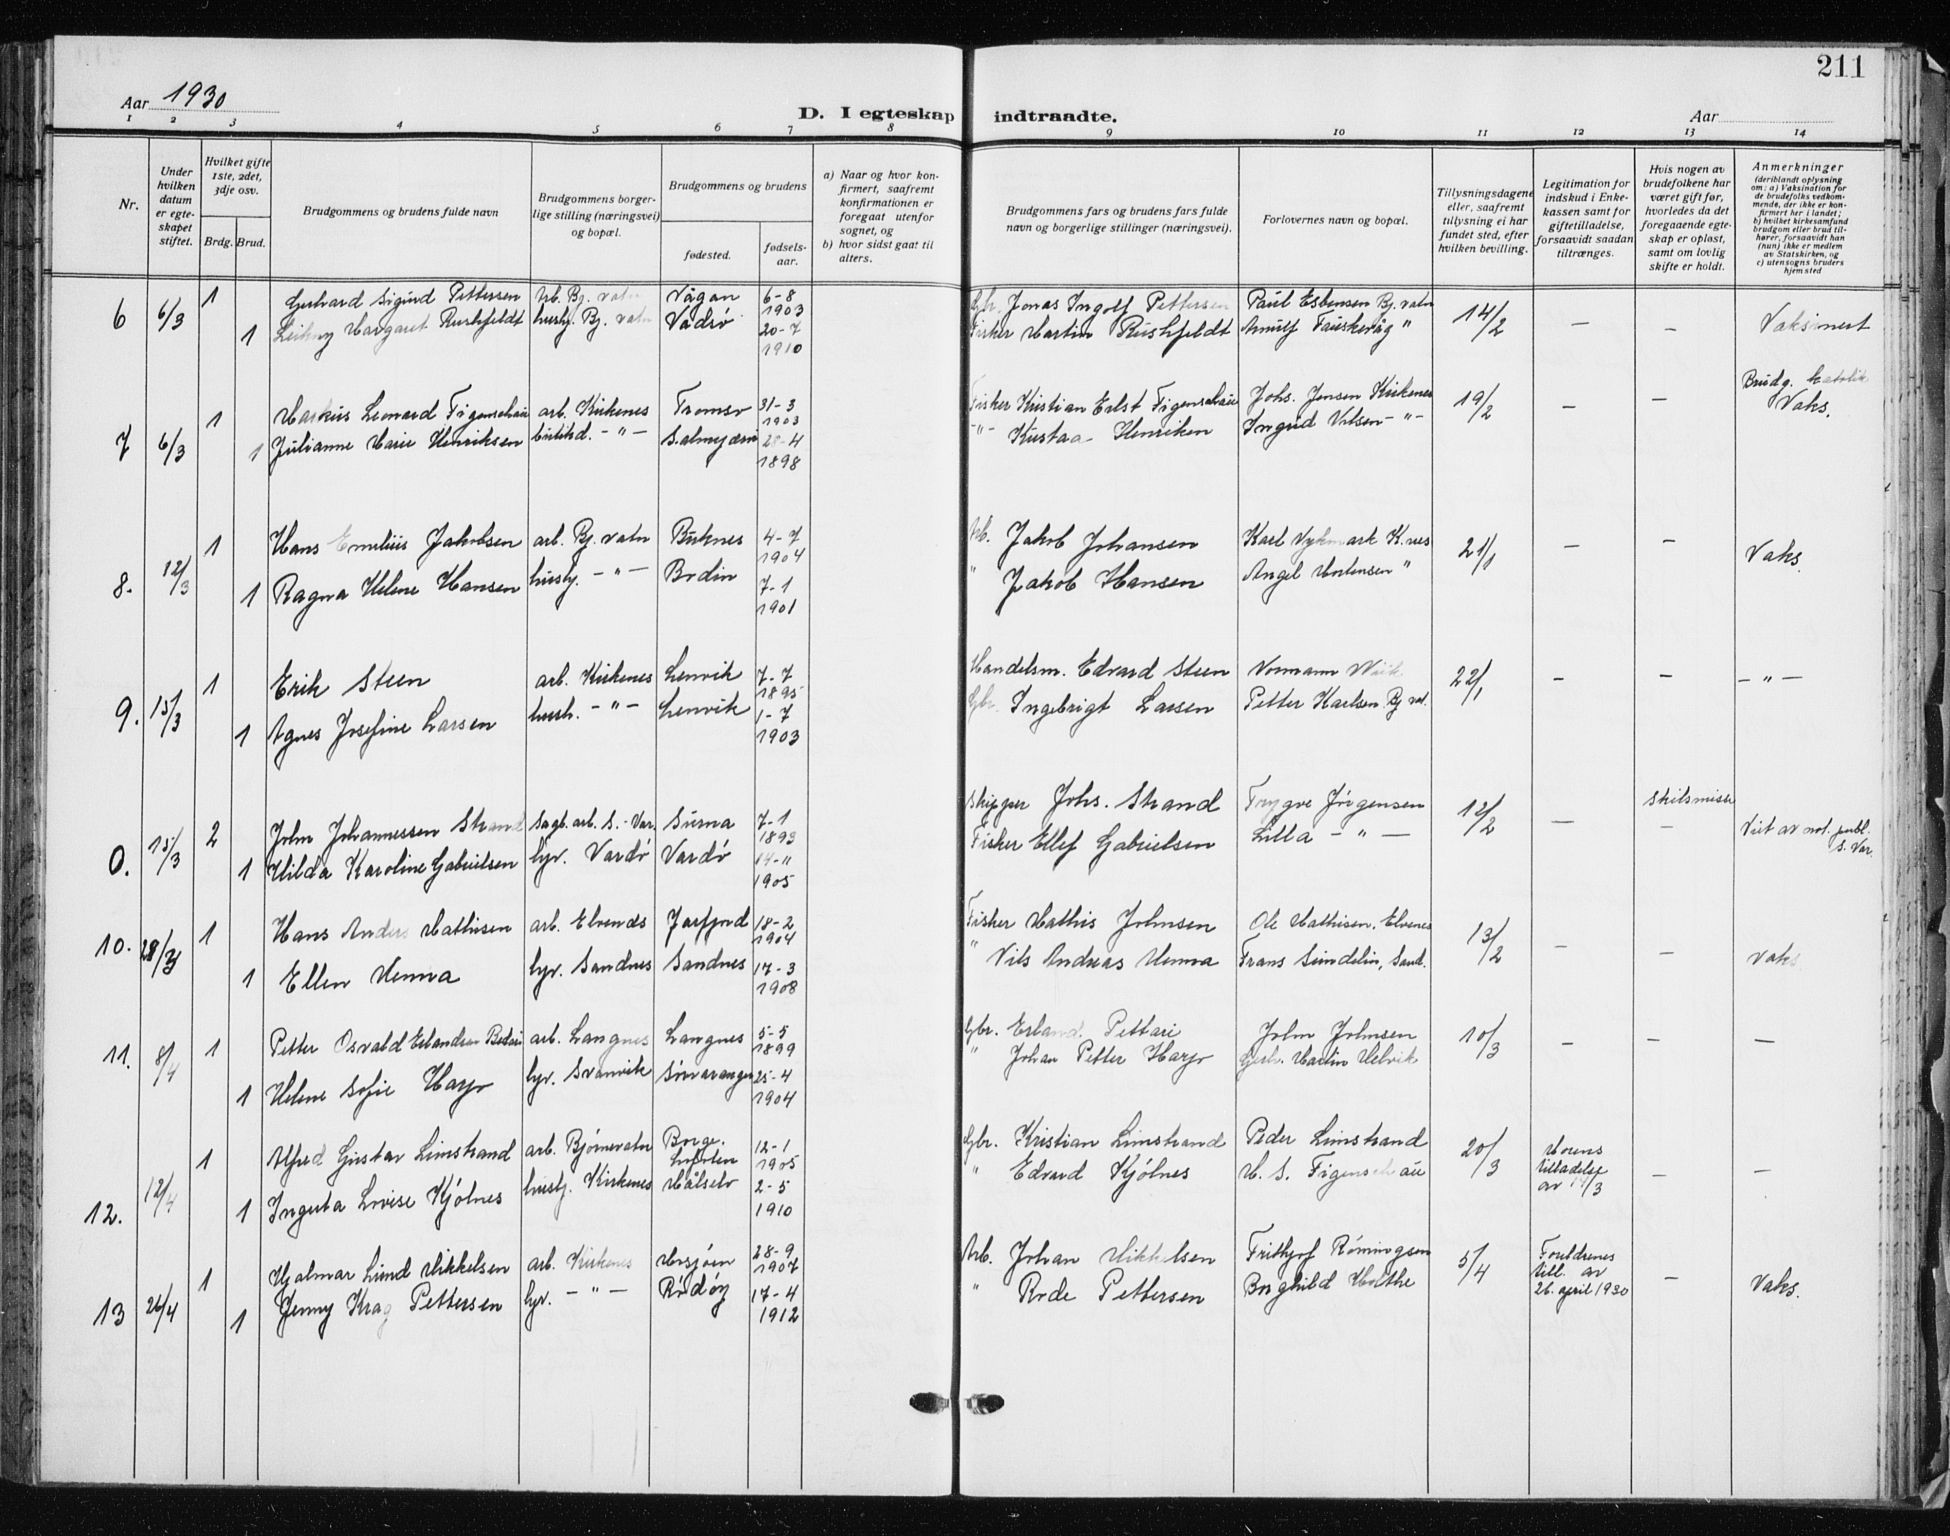 211
Aar 1930
D. I egteskap indtraadte.
Aar
1 2 3 4 5 6 7 8 9 10 11 12 13 14
Nr.
Under
hvilken
datum
er egte-
skapet
stiftet.
Hvilket gifte
1ste, 2det,
3dje osv.
Brdg. Brud.
Brudgommens og brudens fulde navn
Brudgommens borger-
lige stilling (næringsvei)
og bopæl.
Brudgommens og brudens
fødested.
fødsels-
aar.
a) Naar og hvor kon-
firmert, saafremt
konfirmationen er
foregaat utenfor
sognet, og
b) hvor sidst gaat til
alters.
Brudgommens fars og brudens fars fulde
navn og borgerlige stillinger (næringsvei).
Forlovernes navn og bopæl.
Tillysningsdagene
eller, saafremt
tillysning ei har
fundet sted, efter
hvilken bevilling.
Legitimation for
indskud i Enke-
kassen samt for
giftetilladelse,
forsaavidt saadan
tiltrænges.
Hvis nogen av
brudefolkene har
været gift før,
hvorledes da det
foregaaende egte-
skap er opløst,
samt om lovlig
skifte er holdt.
Anmerkninger
(deriblandt oplysning
om: a) Vaksination for
de brudefolks vedkom-
mende, der ikke er kon-
firmert her i landet;
b) hvilket kirkesamfund
brudgom eller brud til-
hører, forsaavidt han
(hun) ikke er medlem
av Statskirken, og
c) utensogns bruders
hjemsted
6 6/3 1 Gerhard Sigurd Pettersen Arb. Bj. vatn Vågan 6-8 1903 Gbr. Jonas Ingolf Pettersen Paul Esbensen Bj. vatn 14/2 — — Vaksinert
1 Leikny Margaret Rushfeldt husbj. Bj. vatn Vadsö 20-7 1910 Fisker Martin Rushfeldt Arnulf Fauskevåg "
7 6/3 1 Markus Leonard Figenschau arb. Kirkenes Tromsö 31-3 1903 Fisker Kristian Erlst Figenschau Johs. Jensen Kirkenes 19/2 — — Brudg. katolik Vaks.
1 Julianne Marie Henriksen - " - 28-4 1898 - " - Kustaa Henriken Ingrid - " -
8. 12/3 1 Hans Emelius Jakobsen arb. Bj. vatn Buknes 4-7 1904 Arb. Jakob Johansen Karl K.nes 21/1 — — Vaks.
1 Ragna Helene Hansen husbj. - " - Bodin 7-1 1901 " Jakob Hansen Angel Mortensen "
9. 15/3 1 Erik Steen arb. Kirkenes Lenvik 7-7 1895 Handelsm. Edvard Steen Normann Wiik 22/1 - - - " -
1 Agnes Josefine Larsen hush. - " - Lenvik 1-7 1903 Gbr. Ingebrigt Larsen Petter Karlsen. Bj vat.
0. 15/3 2 John Johannessen Strand Sagb. arb. S. - Var. Surna 7-1 1893 Skipper Johs. Strand Trygve Jörgensen 12/2 — Skilsmisse
1 Hilda Karoline Gabrielsen hjv. Vardö Vardö 14-11 1905 Fisker Ellef Gabrielsen Lilla - " - — Viet av not. publ. S. Var.
10. 28/3 1 Hans Anders Mathisen arb. Elvenes Jarfjord 18-2 1904 Fisker Mathis Johnsen Ole Mathisen. Elvenes 13/2 - — Vaks
1 Ellen Menna hjv. Sandnes Sandnes 17-3 1908 " Nils Andreas Menna Frans Sundelin, Sand.
11. 8/4 1 Petter Osvald Erlandsen arb. Langnes Langnes 5-5 1899 Gbr. Erland Pettari John Johnsen 10/3 - — —
1 Helene Sofie Harjo hjv. Svanvik Sörvaranger 25-4 1904 " Johan Petter Harjo Martin Melvik
12. 12/4 1 Alfred Gustav Limstrand arb. Bjørnevatn Borge. Lofoten 12-1 1905 Gbr. Kristian Limstrand Peder Limstrand 20/3 Morens tilladelse av 14/3 — —
1 Inguta Lovise Kjölnes husbj. Kirkenes Målselv 2-5 1910 " Edvard Kjölnes M. S. Figenschau
13 26/4 1 Hjalmar Lund Mikkelsen arb. Kirkenes Mosjöen 28-9 1907 Arb. Johan Mikkelsen Frithjof Römingsen 5/4 Foreldrenes till. av 26. april 1930 — Vaks.
1 Jenny Krag Pettersen hjv. - " - Rödöy 17-4 1912 " Rode Pettersen Borghild Holthe